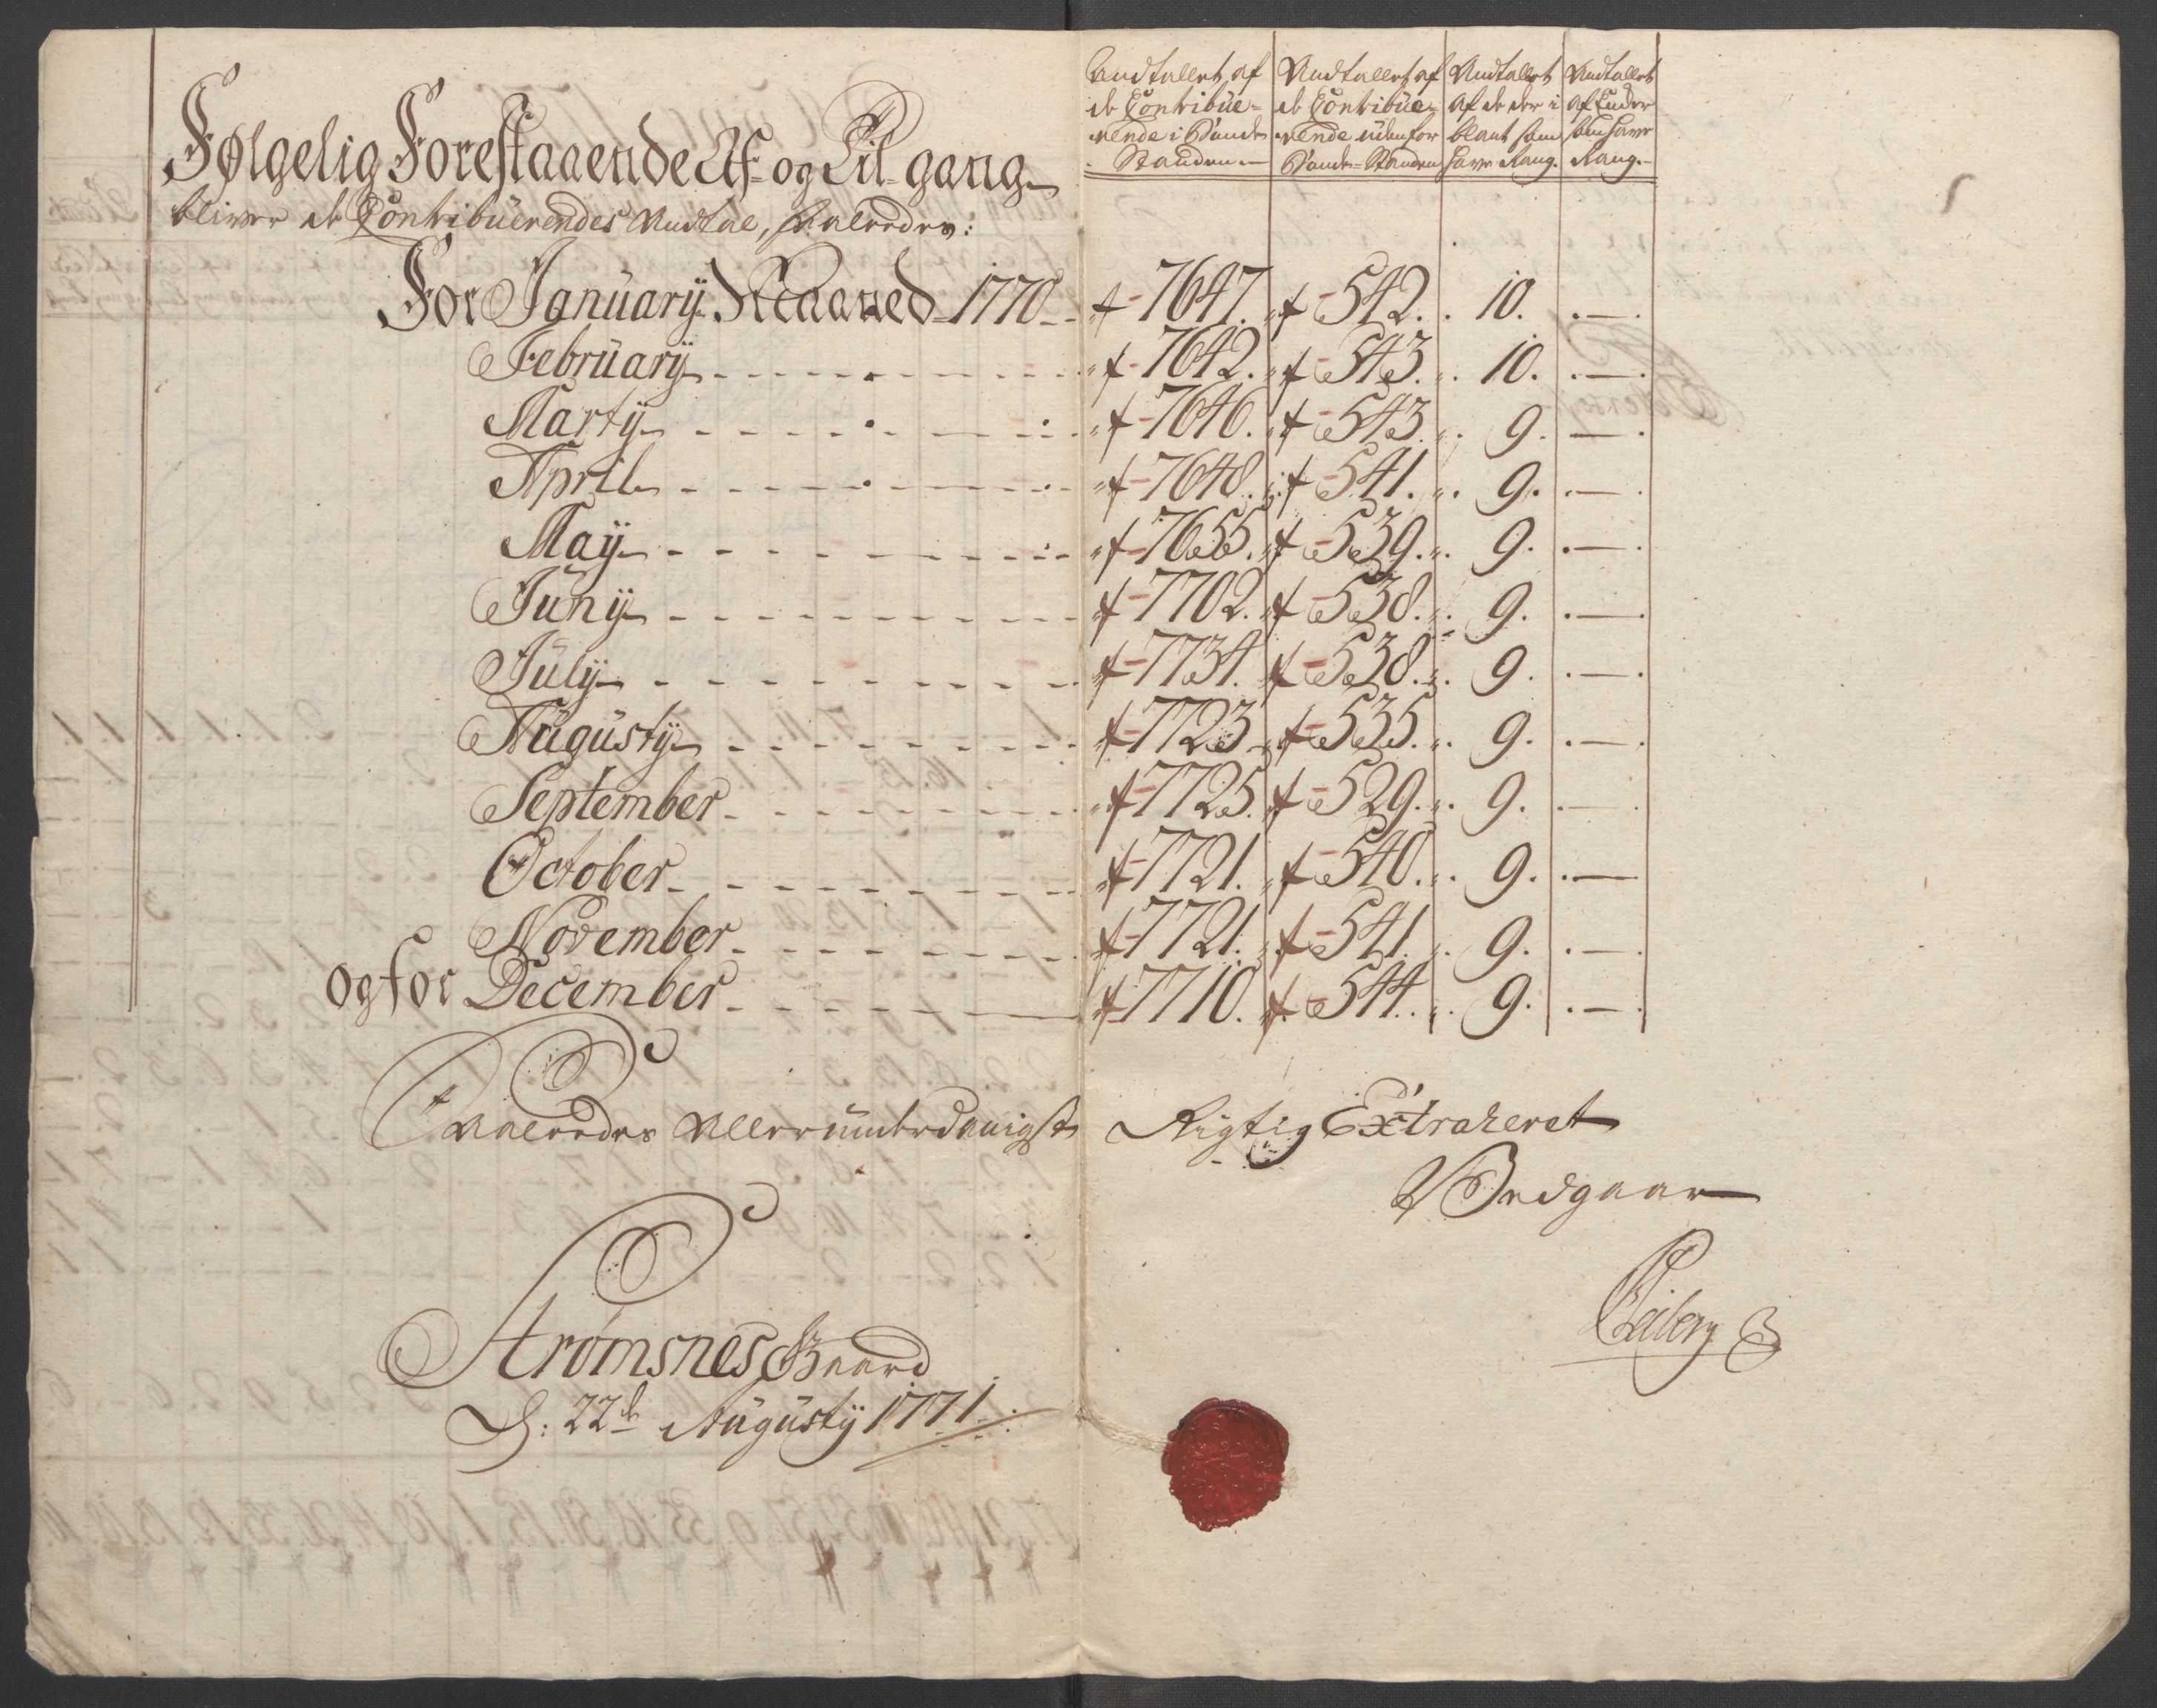 Andtallet af | Andtallet af | Andtallet | Andtallet
de Contribue- | de Contribue- | af de der i | af Encker
rende i Bonde | rende udenfor | blant som | som have
Standen | Bonde-Standen | have Rang. | Rang.
Følgelig Forestaaende Af- og Til-gang
bliver de Contribuerendes Andtal, saaledes:
For January Maaned 1770 7647. 542. 10. —
February 7642. 543. 10. —
Marty 7646. 543. 9. —
April 7648. 541. 9. —
May 7655. 539. 9. —
Juny 7702. 538. 9. —
July 7734. 538. 9. —
Augusty 7723 535. 9. —
September 7725. 529. 9. —
October 7721. 540. 9. —
November 7721. 541. 9. —
og for December 7710. 544. 9. —
Saaledes allerunderdanigst Rigtig Extraheret
Bedgaar
Heiberg
Strømsnes Gaard
d: 22de Augusty 1771